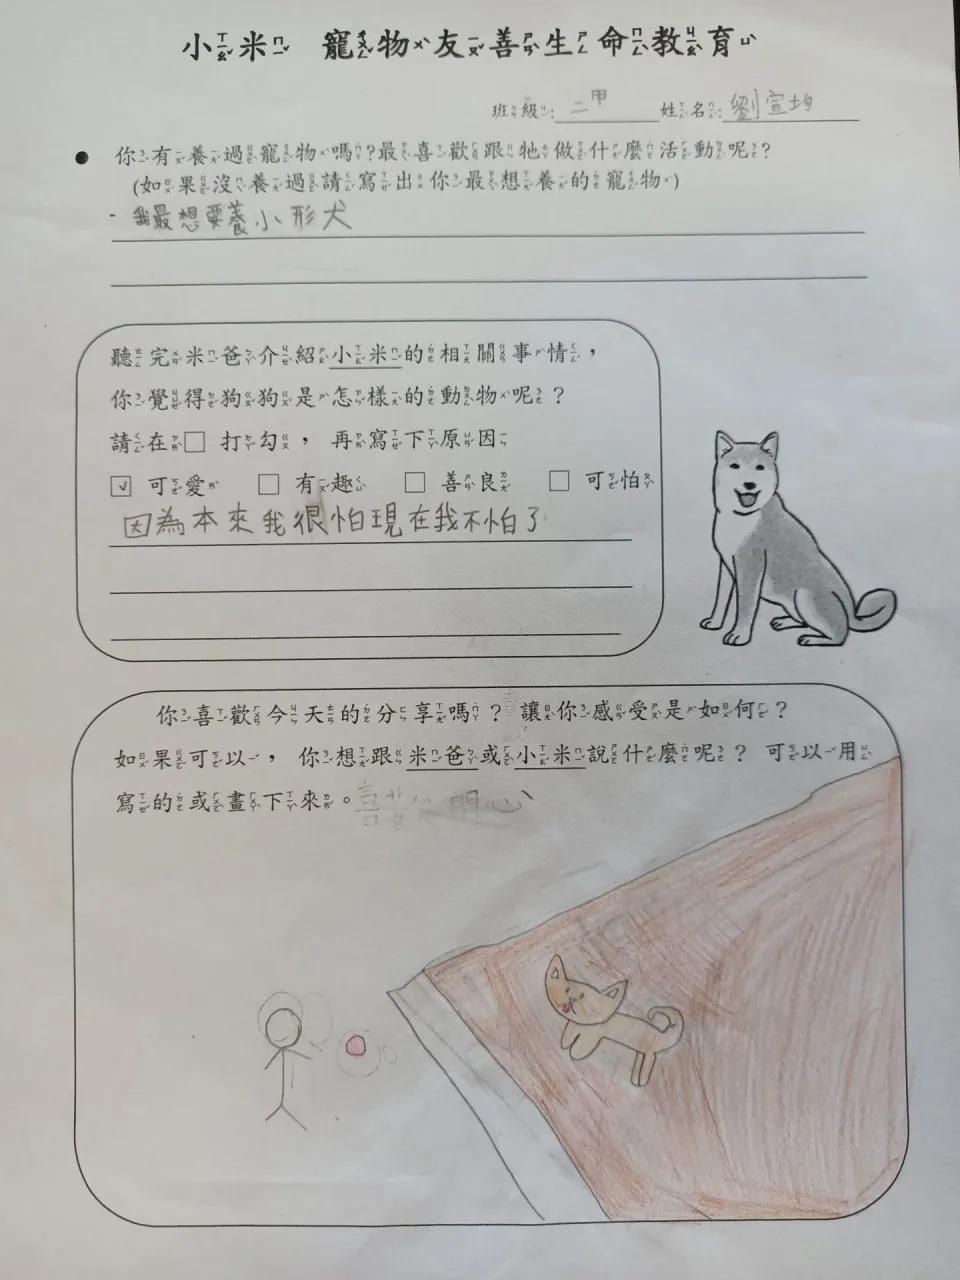 小米 寵物友善生命教育
班級:二甲 姓名:劉宣均
你有養過寵物嗎?最喜歡跟牠做什麼活動呢?
(如果沒養過請寫出你最想養的寵物)
我最想要養小形犬
聽完米爸介紹小米的相關事情,
你覺得狗狗是怎樣的動物呢?
請在□打勾,再寫下原因
☑可愛 □有趣 □善良 □可怕
因為本來我很怕現在我不怕了
你喜歡今天的分享嗎?讓你感受是如何?
如果可以,你想跟米爸或小米說什麼呢?可以用
寫的或畫下來。